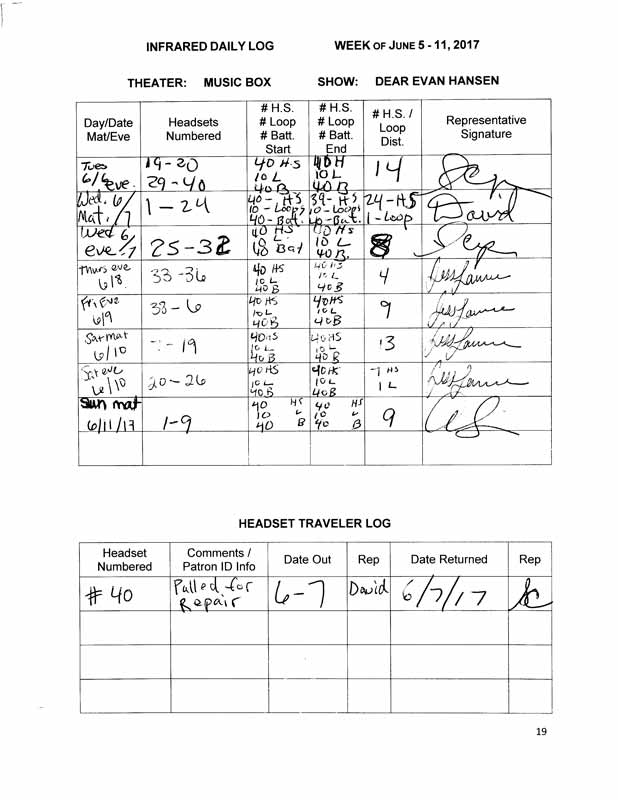 INFRARED DAILY LOG WEEK OF JUNE 5 - 11, 2017
THEATER: MUSIC BOX SHOW: DEAR EVAN HANSEN
Day/Date Mat/Eve Headsets Numbered # H.S. # Loop # Batt. Start # H.S. # Loop # Batt. End # H.S. / Loop Dist. Representative Signature
Tues 6/6 eve. 19-20 29-40 40 H.S 10 L 40 B 40 H 10 L 40 B 14
Wed. 6/7 Mat. 1-24 40- HS 10-Loops 40-Bat. 39- HS 10-Loops 40-Bat. 24-HS 1-Loop David
Wed 6/7 eve 25-32 40 HS 10 L 40 Bat 40 HS 10 L 40 B. 8
Thurs eve 6/8 33-36 40 HS 10 L 40 B 40 HS 10 L 40 B 4
Fri Eve 6/9 38-6 40 HS 10 L 40 B 40 HS 10 L 40 B 9
Sat mat 6/10 7-19 40 HS 10 L 40 B 40 HS 10 L 40 B 13
Sat eve 6/10 20-26 40 HS 10 L 40 B 40 HS 10 L 40 B 7 HS 1 L
Sun mat 6/11/17 1-9 40 HS 10 L 40 B 40 HS 10 L 40 B 9
HEADSET TRAVELER LOG
Headset Numbered Comments / Patron ID Info Date Out Rep Date Returned Rep
# 40 Pulled for Repair 6-7 David 6/7/17
19